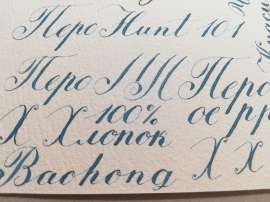 Перо Hunt 101
Перо ЛП Перо
100% ос рр
Х Х Хлопок
Baohong Х Х